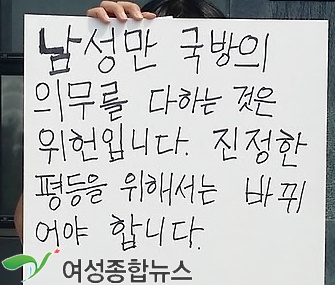 남성만 국방의
의무를 다하는 것은
위헌입니다. 진정한
평등을 위해서는 바뀌
어야 합니다.
여성종합뉴스